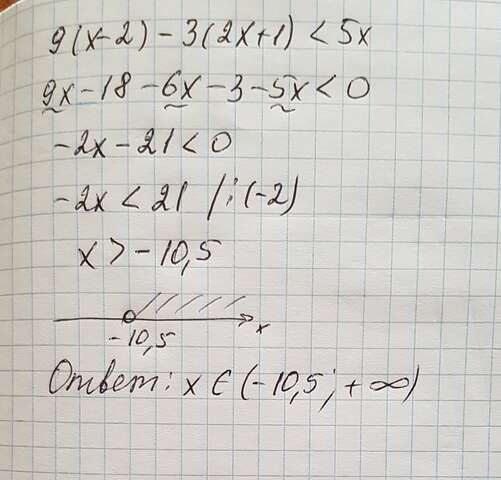 9(x-2)-3(2x+1)<5x
9x-18-6x-3-5x<0
-2x-21<0
-2x<21 /:(-2)
x>-10,5
-10,5 x
Ответ: x∈(-10,5; +∞)